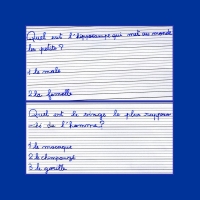 Quel est l'hippocampe qui met au monde
les petits ?
1 le male
2 la femelle
Quel est le singe le plus rapproché
de l'homme ?
1 le macaque
2 le chimpanzé
3 le gorille